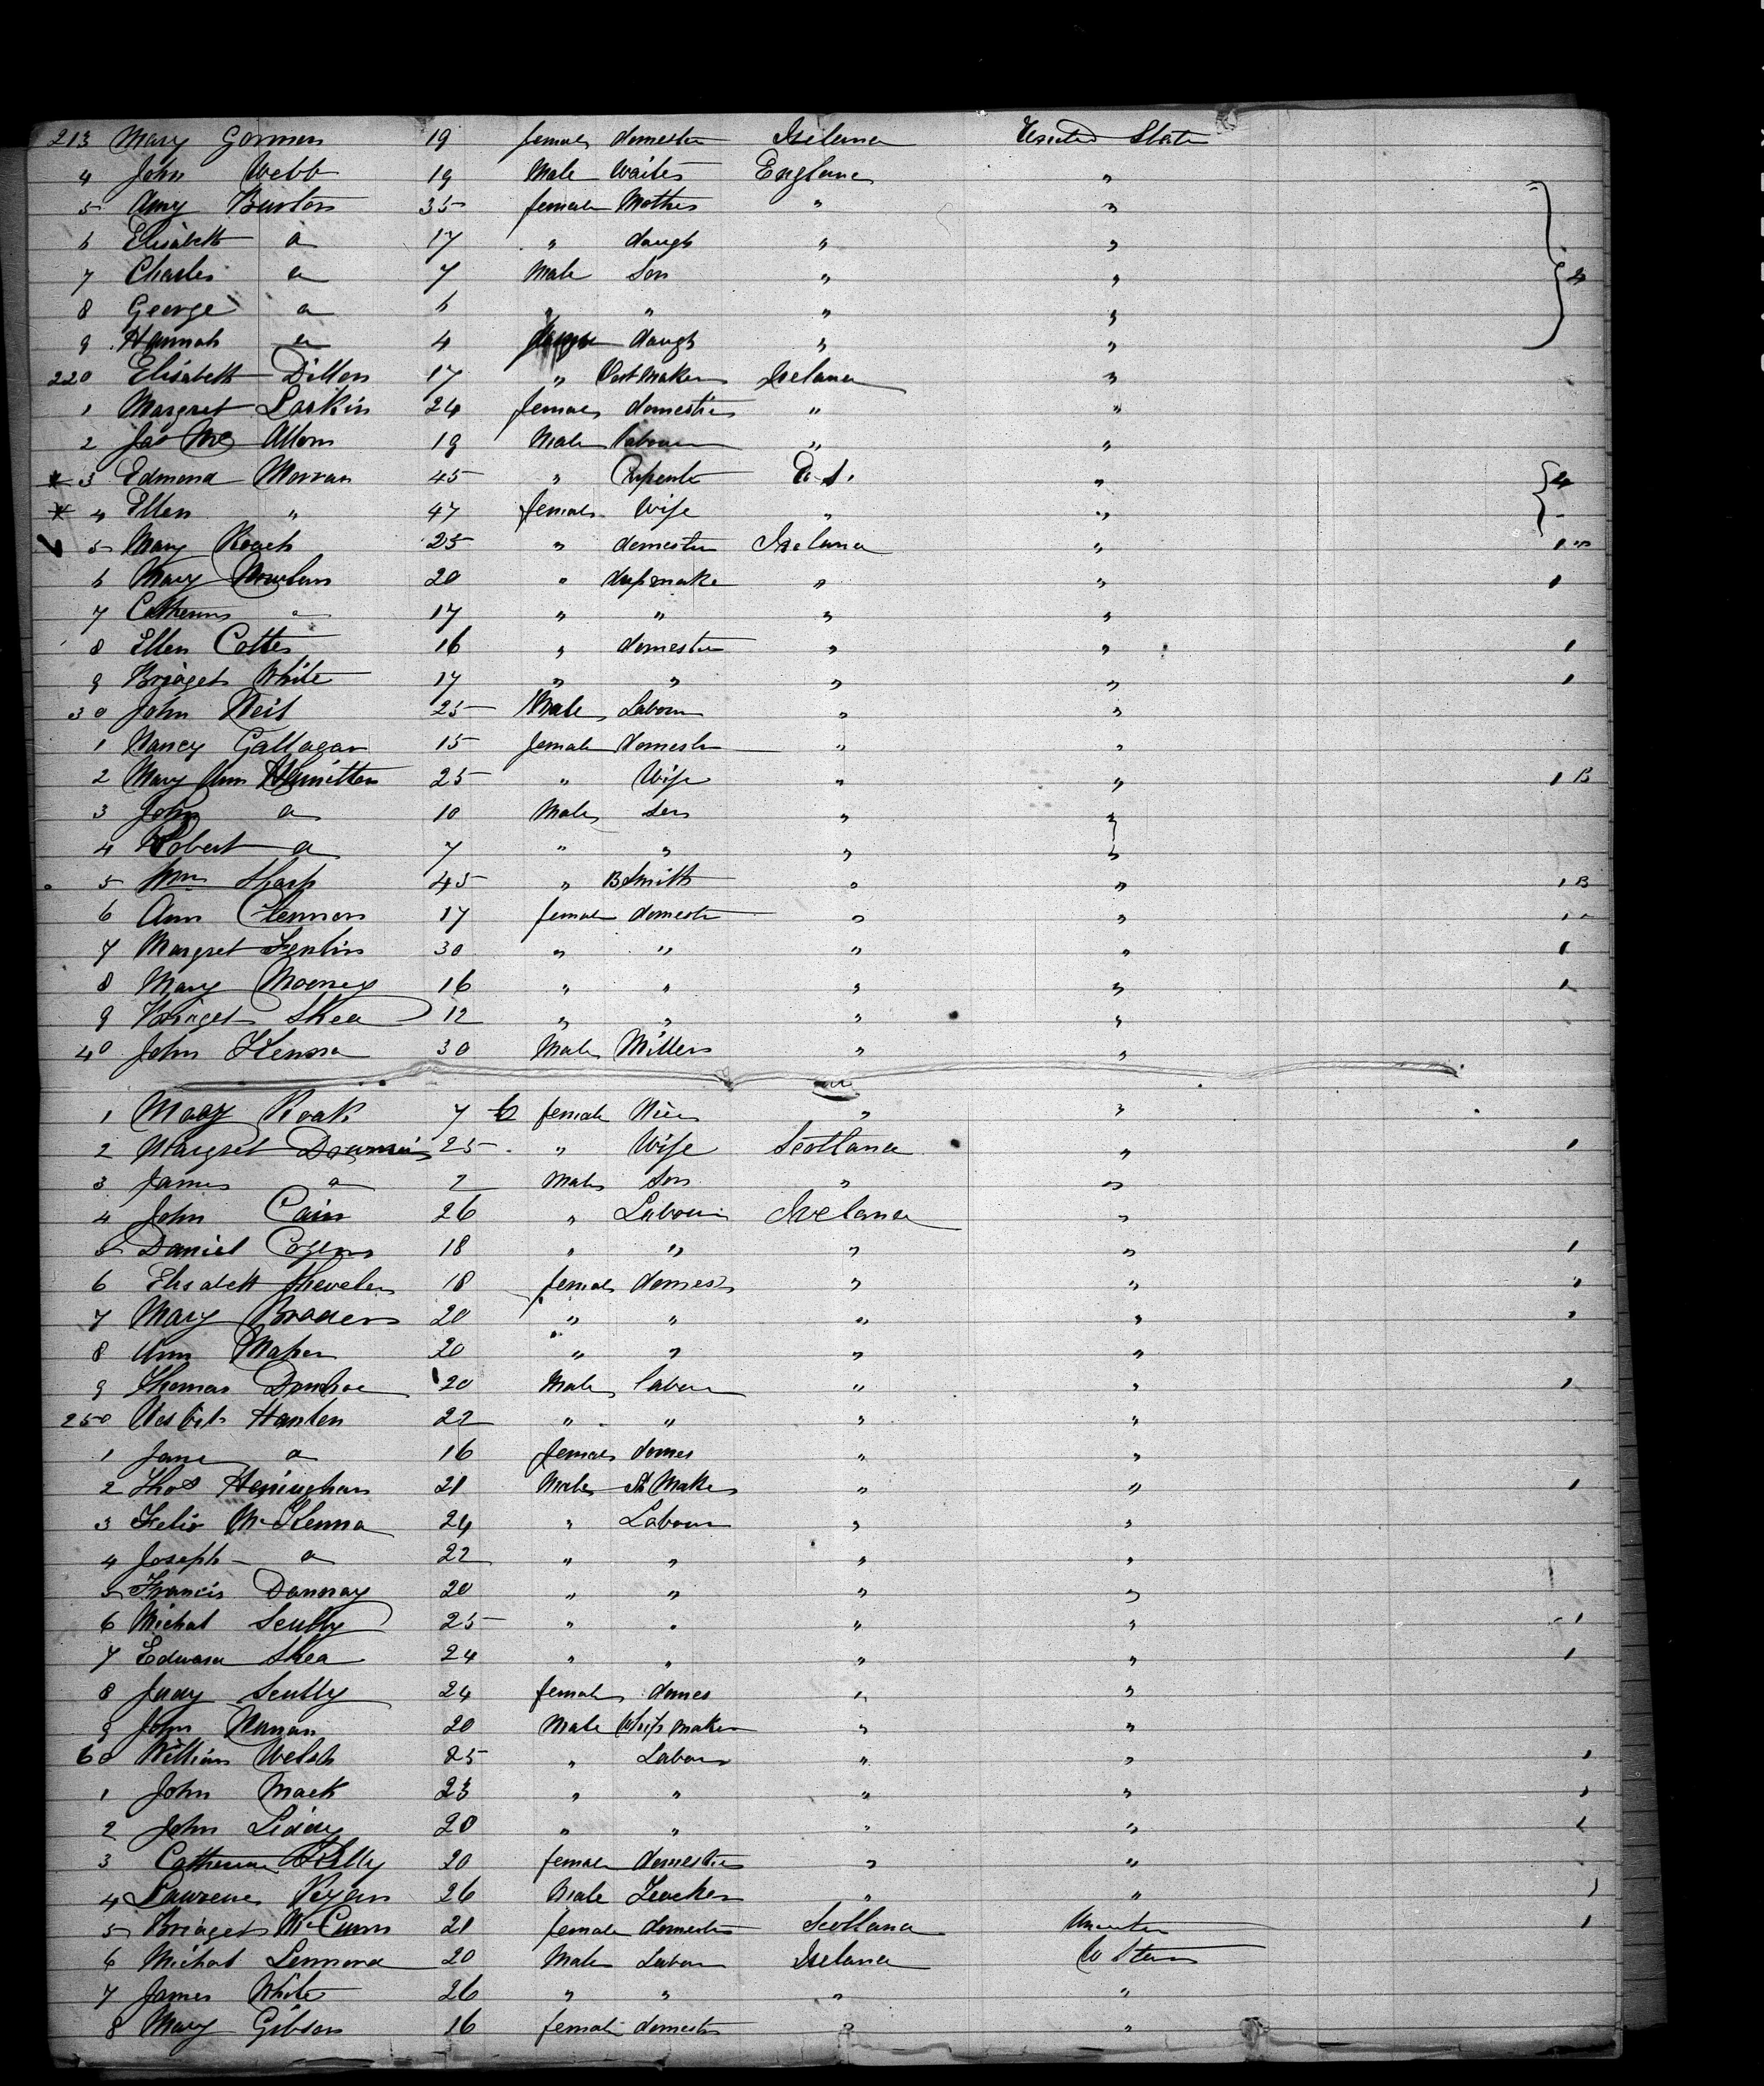 213 Mary Gorman 19 female domestic Ireland United State
4 John Webb 19 Male Waiter England "
5 Amy Burton 35 female Mother " "
6 Elisabeth a 17 " daugh " "
7 Charles a 7 Male Son " " 4
8 George a 6 " " " "
9 Hannah a 4 daugh " "
220 Elisabeth Dillon 17 " Maker Ireland "
1 Margret Larkin 24 female domestic " "
2 Jas Mc 19 Male labour " "
3 Edmond Morran 45 " U. S. " 4
4 Ellen " 47 female Wife " "
5 Mary Roach 25 " domestic Ireland " 1
6 Mary Nowlan 20 " " " 1
7 Catherine a 17 " " " "
8 Ellen Cotter 16 " domestic " " 1
9 Bridget White 17 " " " " 1
30 John Neil 25 Male Labour " "
1 Nancy Gallagar 15 female domestic " "
2 Mary Ann Hamilton 25 " Wife " " 1 B
3 John a 10 Male Son " "
4 Robert a 7 " " " "
5 Wm Sharp 45 " B Smith " " 1 B
6 Ann 17 female domestic " " 1
7 Margret 30 " " " " 1
8 Mary Mooney 16 " " " " 1
9 Bridget Shea 12 " " " "
40 John Kenna 30 Male Miller " "
1 Mary Roak 7 female " "
2 Margret 25 " Wife Scotland " 1
3 James a 2 Male Son " "
4 John Cain 26 " Labour Ireland "
5 Daniel 18 " " " " 1
6 Elisabeth 18 female domes " " 1
7 Mary Braden 20 " " " " 1
8 Ann Maher 20 " " " "
9 Thomas Donohoe 20 Male labour " " 1
250 Hanlen 22 " " " "
1 Jane a 16 female domes " "
2 Thos 21 Male Maker " " 1
3 Felix McKenna 24 " Labour " "
4 Joseph a 22 " " " "
5 Francis 20 " " " "
6 Michal Scully 25 " " " " 1
7 Edward Shea 24 " " " " 1
8 Judy Scully 24 female domes " "
9 John 20 Male Whip maker " "
60 William Welsh 25 " Labour " " 1
1 John Mack 23 " " " " 1
2 John Liddy 20 " " " " 1
3 Catherine 20 female domestic " "
4 Lawrence Ryan 26 Male Teacher " " 1
5 Bridget 21 female domestic Scotland 1
6 Michal Lennord 20 Male Labour Ireland
7 James White 26 " " " "
8 Mary Gibson 16 female domestic " "